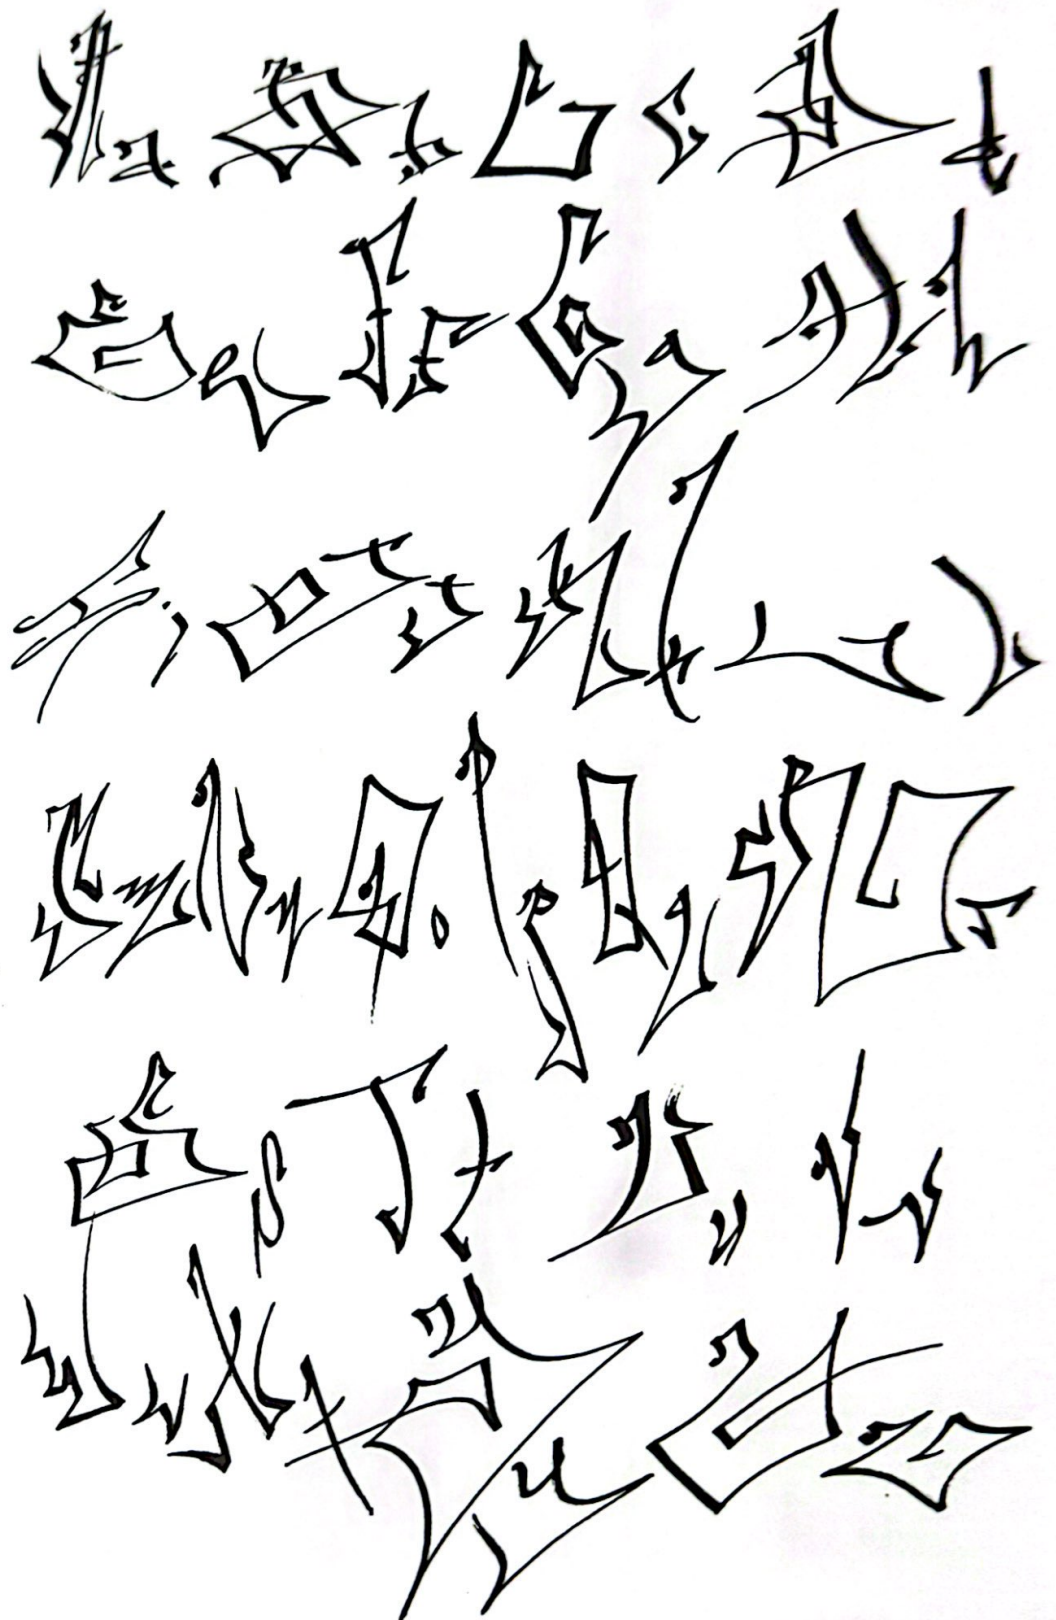 Aa Bb Cc Dd
Ee Ff Gg Hh
Ii Jj Kk Ll
Mm Nn Oo Pp Qq Rr
Ss Tt Uu Vv
Ww Xx Yy Zz